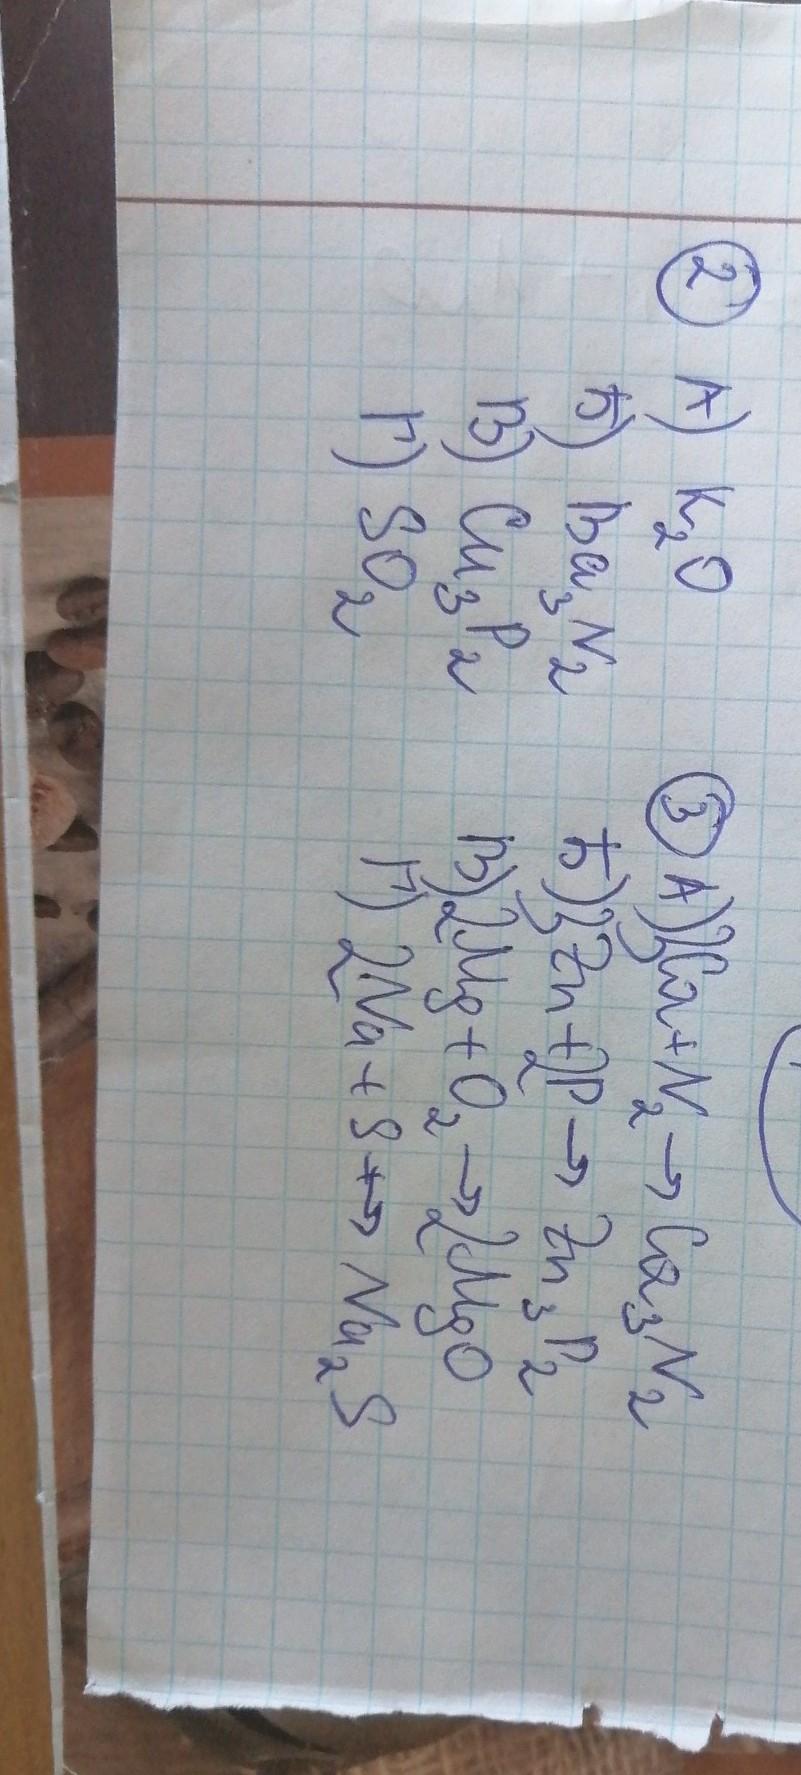 ② А) K₂O
Б) Ba₃N₂
В) Cu₃P₂
Г) SO₂
③ А) 3Ca + N₂ → Ca₃N₂
Б) 3Zn + 2P → Zn₃P₂
В) 2Mg + O₂ → 2MgO
Г) 2Na + S → Na₂S